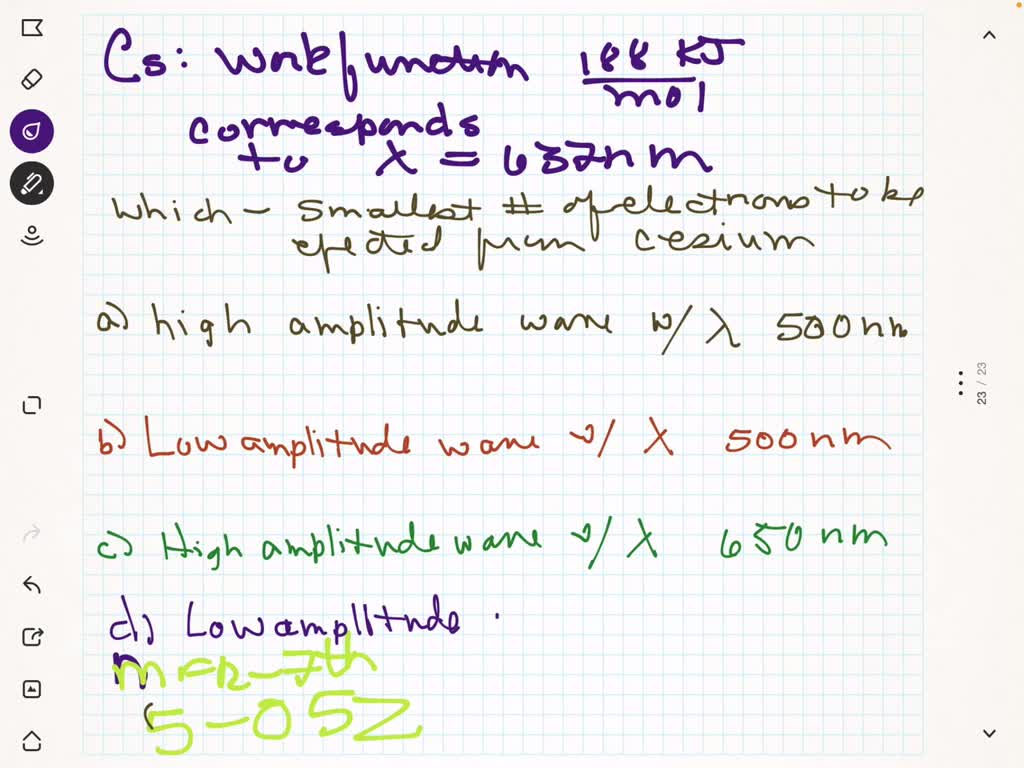 Cs: Workfunction 188 KJ/mol
corresponds
to λ = 637nm
Which - smallest # of electrons to be
ejected from cesium
a) high amplitude wave w/ λ 500nm
b) Low amplitude wave w/ λ 500nm
c) High amplitude wave w/ λ 650nm
d) Low amplitude
7th
5-05Z
23 / 23